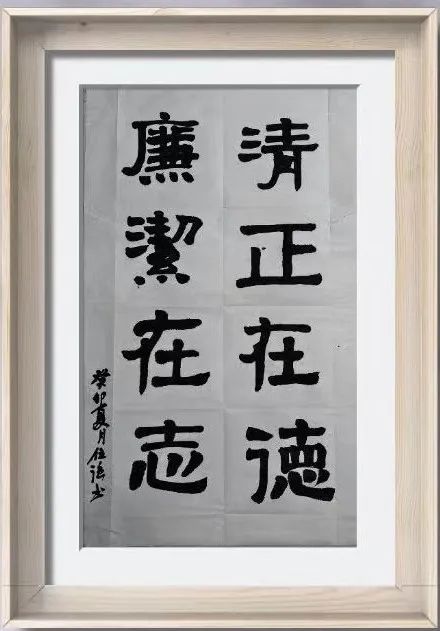 清正在德
廉潔在志
癸卯夏月任語书